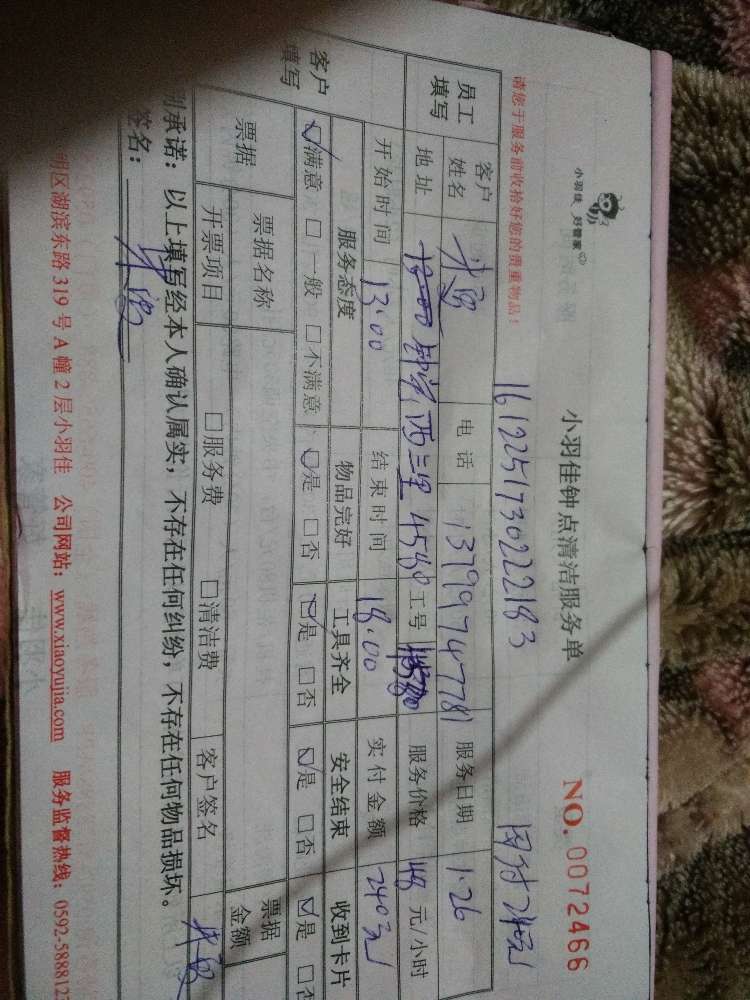 小羽佳 好管家
小羽佳钟点清洁服务单
NO. 0072466
请您于服务前收拾好您的贵重物品！
161225173022183
员工填写
客户姓名
电话 13799747781 服务日期 1.26
地址 西三里 工号 服务价格 48 元/小时
开始时间 13:00 结束时间 18:00 实付金额 240元
客户填写
服务态度 物品完好 工具齐全 安全结束 收到卡片
☑满意 □一般 □不满意 ☑是 □否 ☑是 □否 ☑是 □否 ☑是 □否
票据
票据名称 票据金额
开票项目 □服务费 □清洁费 客户签名
承诺：以上填写经本人确认属实，不存在任何纠纷，不存在任何物品损坏。
签名：
明区湖滨东路 319 号 A 幢 2 层小羽佳 公司网站：www.xiaoyujia.com 服务监督热线：0592-588812